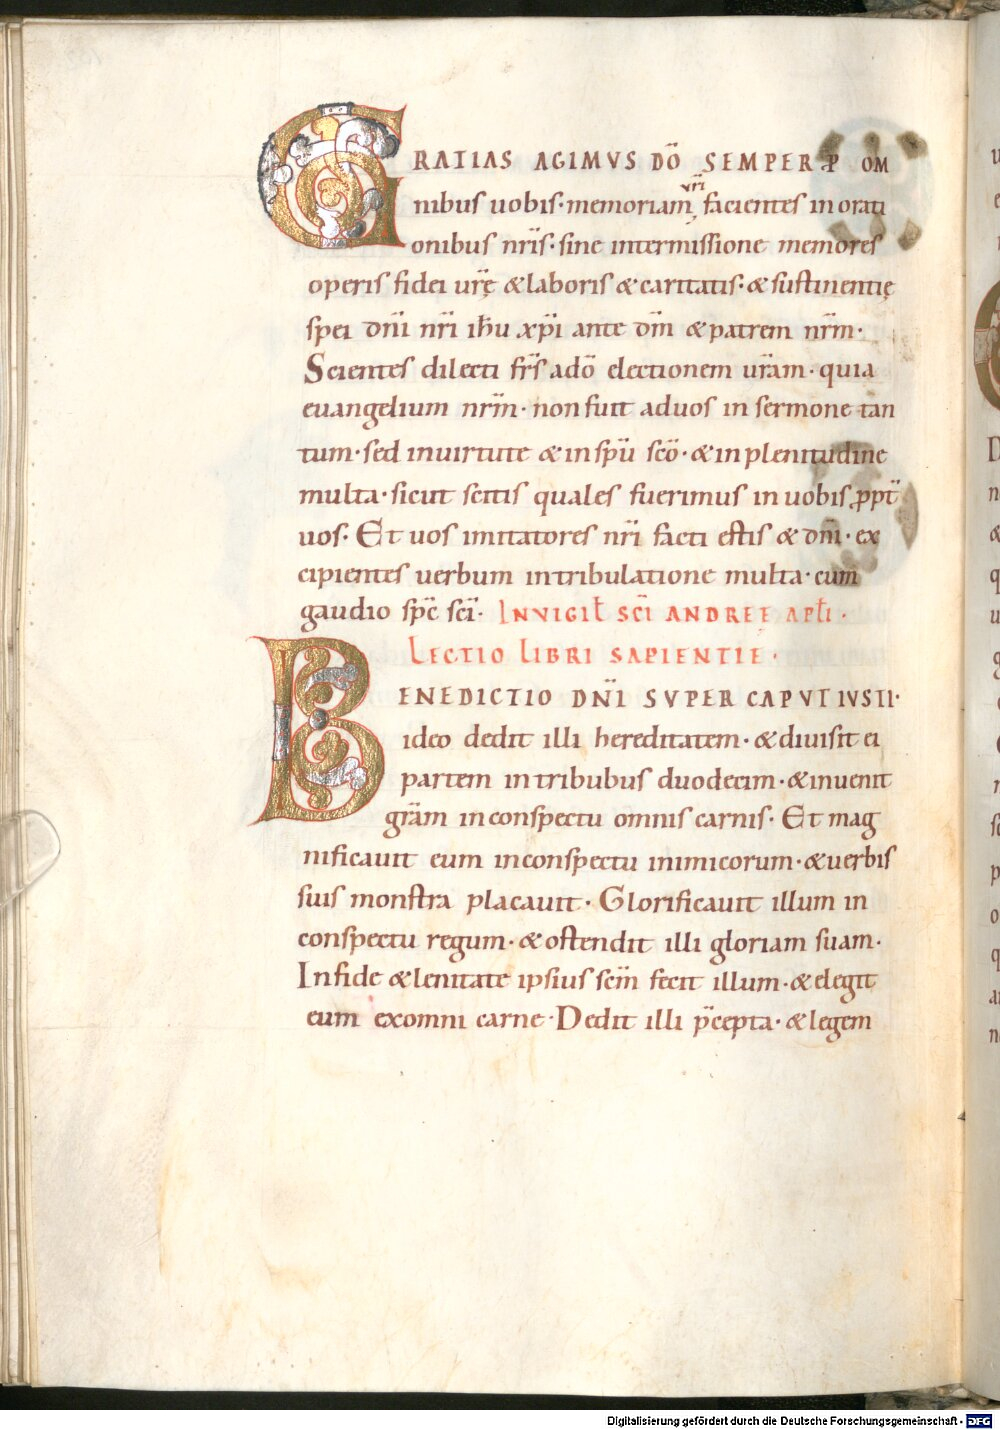 GRATIAS AGIMVS DŌ SEMPER P̱ OM
nibus uobis· memoriam vr̄i facientes in orati
onibus nr̄is· sine intermissione memores
operis fidei urę̄ & laboris & caritatis· & sustinentię
spei dn̄i nr̄i ih̄u xp̄i ante dm̄ & patrem nrm̄·
Scientes dilecti frs̄ adō electionem urām· quia
euangelium nrm̄· non fuit aduos in sermone tan
tum· sed inuirtute & in spū scō· & in plenitudine
multa· sicut scitis quales fuerimus in uobis ꝓpt̄
uos· Et uos imitatores nr̄i facti estis & dn̄i· ex
cipientes uerbum intribulatione multa· cum
gaudio sp̄c sc̄i· INVIGIL̄ SC̄I ANDREĘ APL̄I·
LECTIO LIBRI SAPIENTIE·
BENEDICTIO DN̄I SVPER CAPVT IVSTI·
ideo dedit illi hereditatem· & diuisit ei
partem in tribubus duodecim· & inuenit
grām inconspectu omnis carnis· Et mag
nificauit eum inconspectu inimicorum· & uerbis
suis monstra placauit· Glorificauit illum in
conspectu regum· & ostendit illi gloriam suam·
Infide & lenitate ipsius scm̄ fecit illum· & elegit
eum exomni carne· Dedit illi p̄cepta· & legem
Digitalisierung gefördert durch die Deutsche Forschungsgemeinschaft - DFG